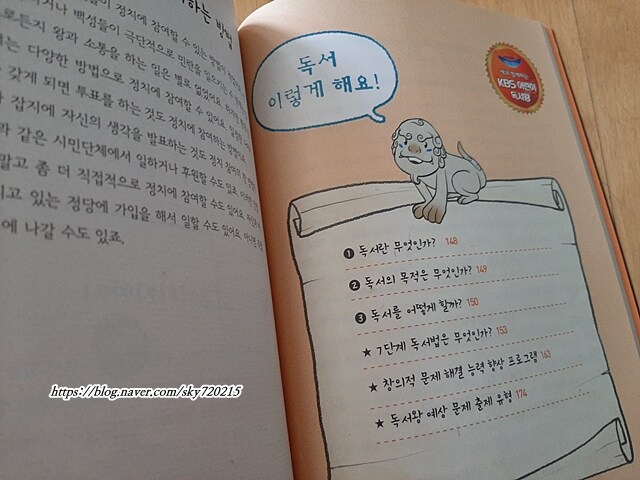 하는 방법
거나 백성들이 정치에 참여할 수 있는
로든지 왕과 소통을 하는 일은 별로 없었어요.
는 다양한 방법으로 정치에 참여할 수 있어요.
갖게 되면 투표를 하는 것도 정치에 참여하는
잡지에 자신의 생각을 발표하는 것도 정치
과 같은 시민단체에서 일하거나 후원할 수도 있고,
말고 좀 더 직접적으로 정치에 참여할 수도 있어요.
고 있는 정당에 가입을 해서 일할 수도 있어요.
에 나갈 수도 있죠.
독서
이렇게 해요!
책과 함께하는
KBS 어린이
독서왕
❶ 독서란 무엇인가? 148
❷ 독서의 목적은 무엇인가? 149
❸ 독서를 어떻게 할까? 150
★ 7단계 독서법은 무엇인가? 153
★ 창의적 문제 해결 능력 향상 프로그램 163
★ 독서왕 예상 문제 출제 유형 174
https://blog.naver.com/sky720215